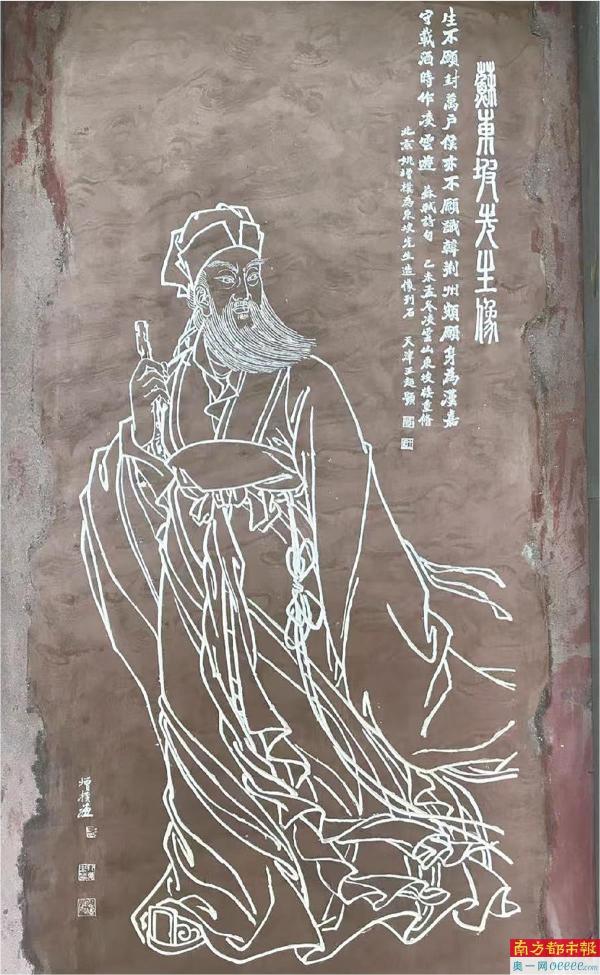 蘇東坡先生像
生不願封萬戶侯亦不願識韓荊州頗願身為漢嘉
守載酒時作凌雲遊 蘇軾詩句 乙未孟冬凌雲山東坡樓重脩
北京姚增樸為東坡先生造像石 天津王
增樸
南方都市報
奥一网oeeee.com